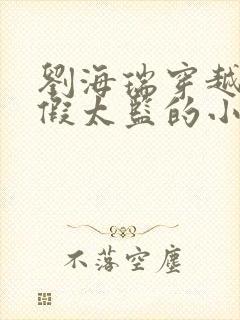 劉海瑞穿越
假太監的小
不落空塵